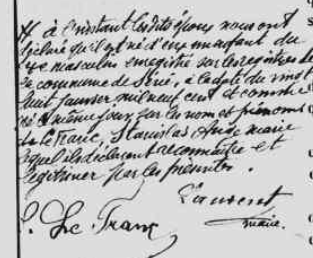 # à l'instant lesdits époux nous ont
déclaré qu'il est né d'eux un enfant du
sexe masculin enregistré sur les registres de
la commune de à la date du vingt
huit janvier mil neuf cent et comme
né le même jour sous les nom et prénoms
de Le Franc, Stanislas André Marie
lequel ils déclarent reconnaître et
légitimer par les présentes.
maire.
S. Le Franc